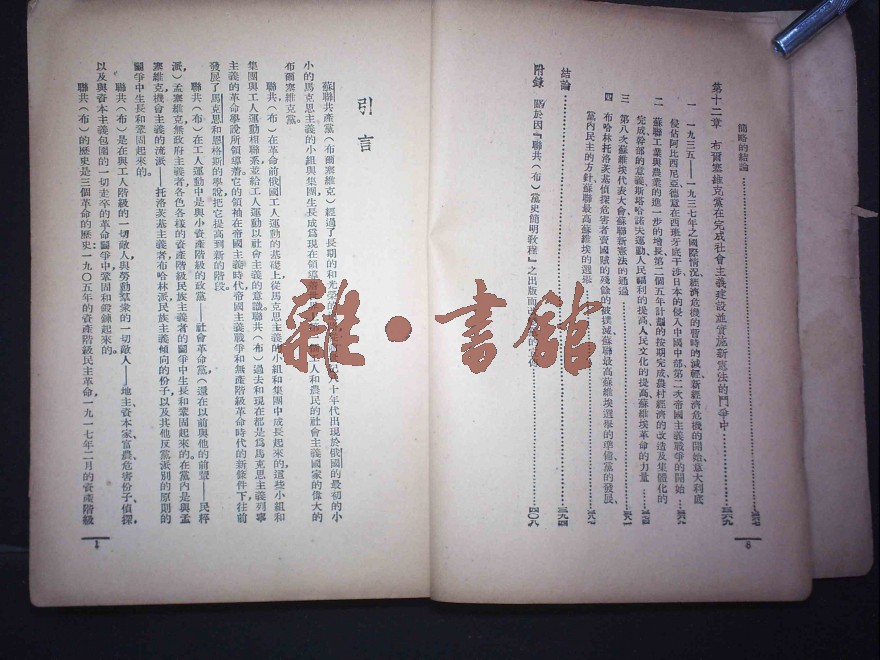 簡略的結論
第十二章 布爾塞維克黨在完成社會主義建設並實施新憲法的鬥爭中
一 一九三五——一九三七年之國際情況經濟危機的暫時的減輕新經濟危機的開始意大利底
侵佔阿比西尼亞德意在西班牙底干涉日本的侵入中國中部第二次帝國主義戰爭的開始
二 蘇聯工業與農業的進一步的增長第二個五年計劃的按期完成農村經濟的改造及集體化的
完成幹部的意義斯塔哈諾夫運動人民福利的提高人民文化的提高蘇維埃革命的力量
三 第八次蘇維埃代表大會蘇聯新憲法的通過
四 布哈林托洛茨基偵探危害者賣國賊的殘餘的被撲滅蘇聯最高蘇維埃選舉的準備黨的發展、
黨內民主的方針蘇聯最高蘇維埃的選舉
結論 三九四
附錄 關於因『聯共(布)黨史簡明教程』之出版而 四〇八
8
引言
蘇聯共產黨(布爾塞維克)經過了長期的和光榮的 八十年代出現於俄國的最初的小
小的馬克思主義的小組與集團,生長成為現在領導着 工人和農民的社會主義國家的偉大的
布爾塞維克黨。
聯共(布)在革命前俄國工人運動的基礎上從馬克思主義的小組和集團中成長起來的,這些小組和
集團與工人運動相聯系並給工人運動以社會主義的意識聯共(布)過去和現在都是為馬克思主義列寧
主義的革命學說所領導着它的領袖在帝國主義時代帝國主義戰爭和無產階級革命時代的新條件下往前
發展了馬克思和恩格斯的學說把它提高到新的階段。
聯共(布)在工人運動中是與小資產階級的政黨——社會革命黨(還在以前與他的前輩——民粹
派),孟塞維克無政府主義者各色各樣的資產階級民族主義者的鬥爭中生長和鞏固起來的。在黨內是與孟
塞維克機會主義的流派——托洛茨基主義者布哈林派民族主義傾向的份子以及其他反黨派別的原則的
鬥爭中生長和鞏固起來的。
聯共(布)是在與工人階級的一切敵人,與勞動羣衆的一切敵人——地主資本家、富農危害份子、偵探
以及與資本主義包圍的一切走卒的革命鬥爭中鞏固和鍛鍊起來的。
聯共(布)的歷史是三個革命的歷史:一九〇五年的資產階級民主革命,一九一七年二月的資產階級
1
雜·書館